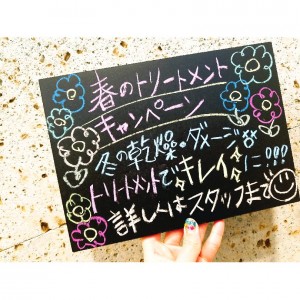 春のトリートメント
キャンペーン
冬の乾燥・ダメージを
トリートメントでキレイに!!!
詳しくはスタッフまで